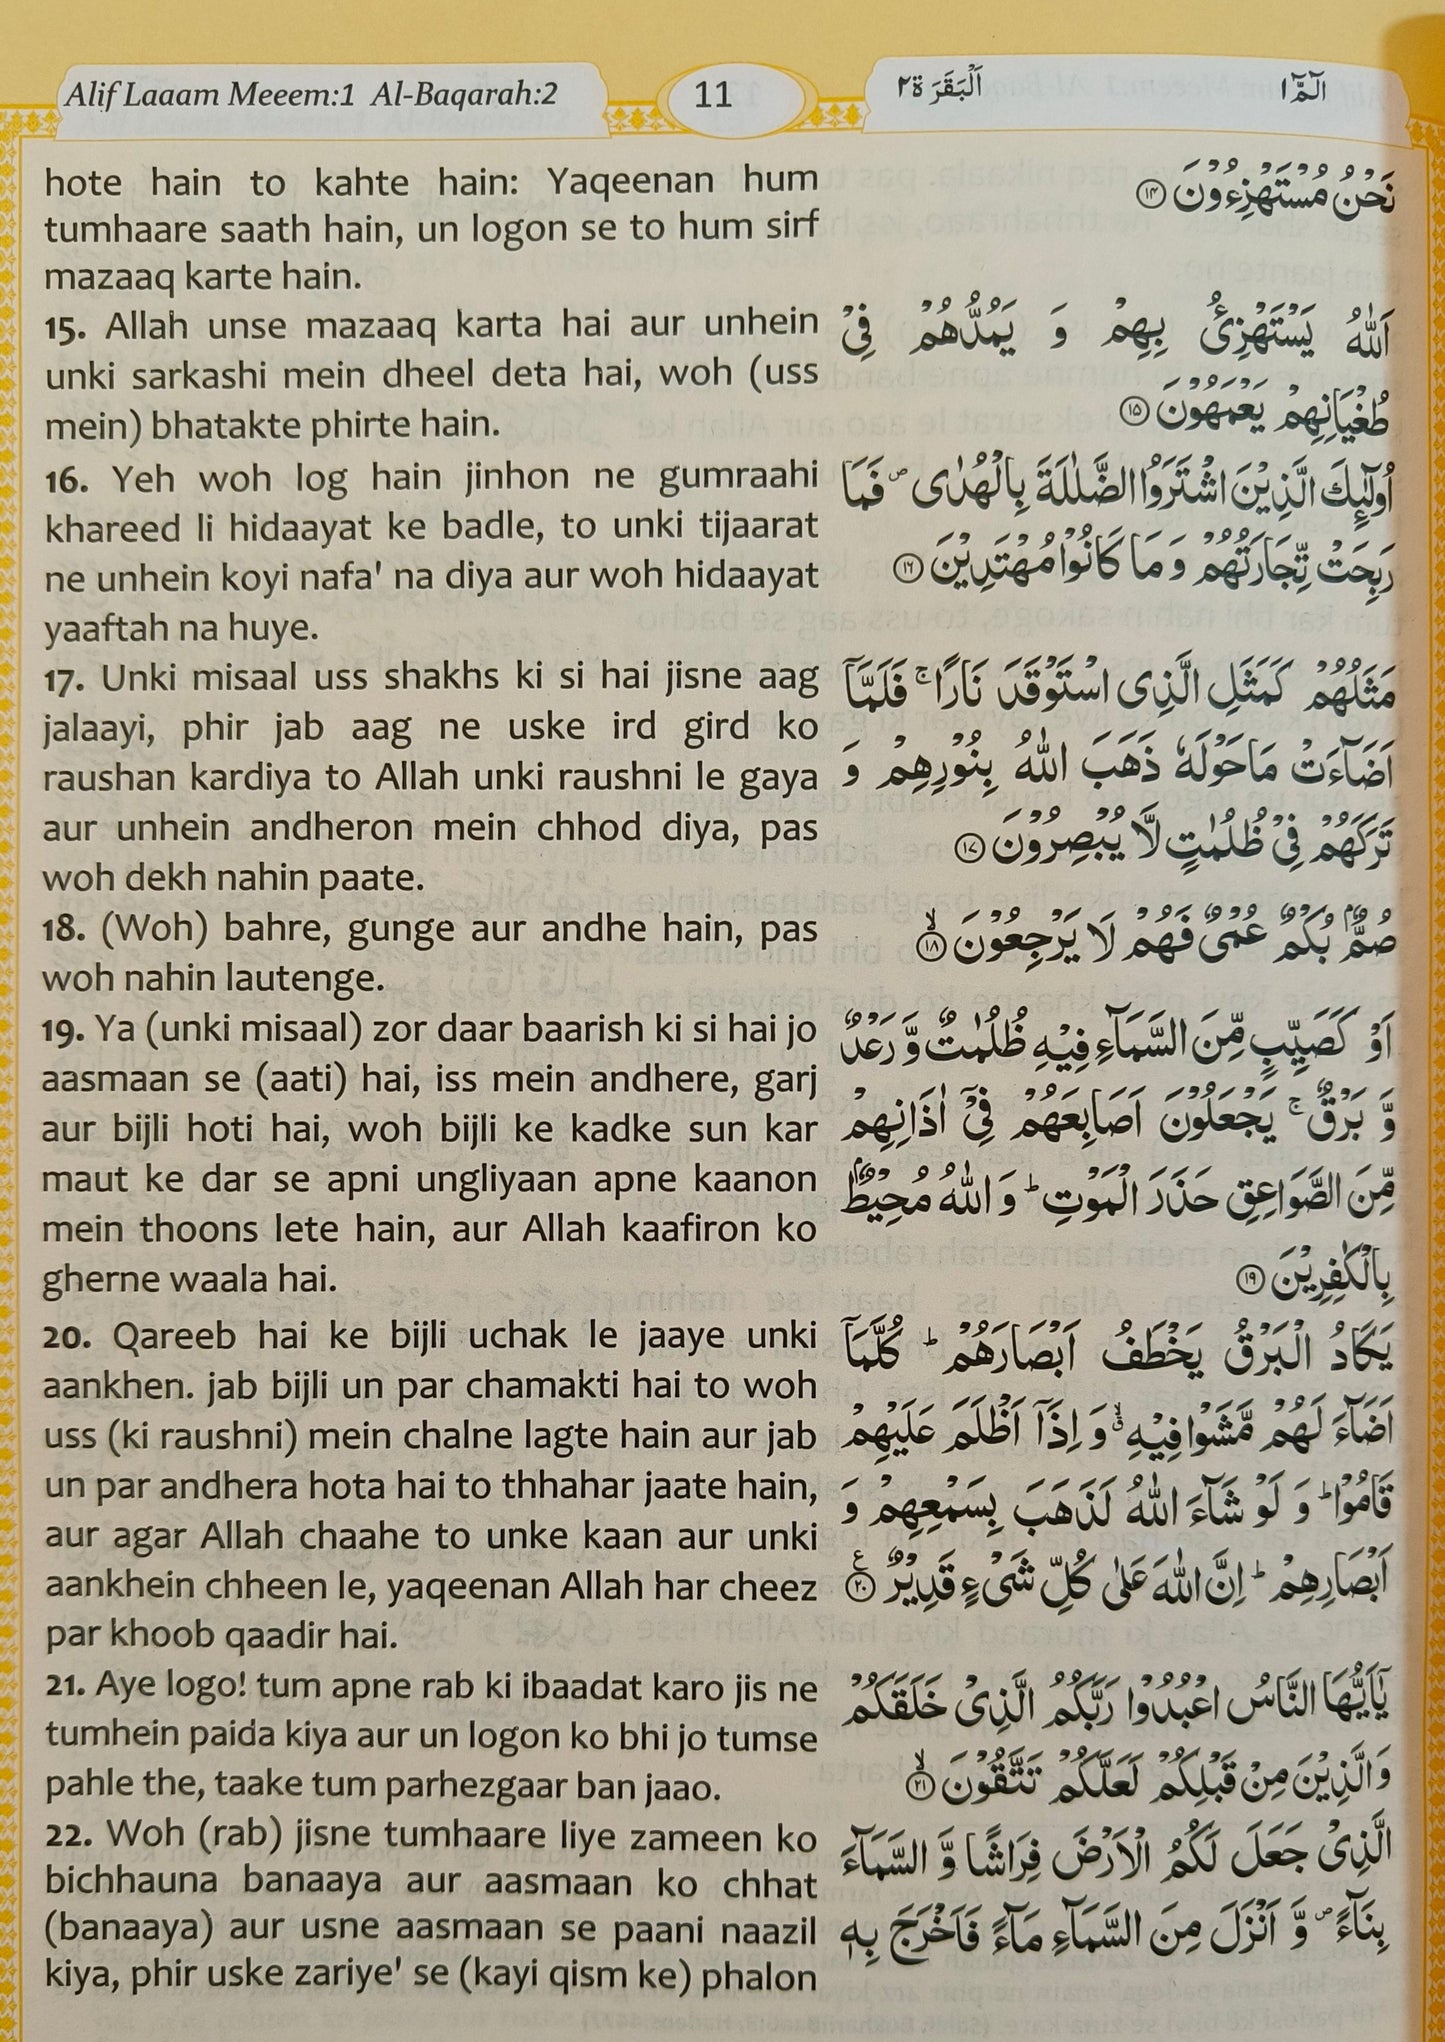 Alif Laaam Meeem:1 Al-Baqarah:2
11
اَلْبَقَرَة٢
الٓمّٓ١
hote hain to kahte hain: Yaqeenan hum
tumhaare saath hain, un logon se to hum sirf
mazaaq karte hain.
15. Allah unse mazaaq karta hai aur unhein
unki sarkashi mein dheel deta hai, woh (uss
mein) bhatakte phirte hain.
16. Yeh woh log hain jinhon ne gumraahi
khareed li hidaayat ke badle, to unki tijaarat
ne unhein koyi nafa' na diya aur woh hidaayat
yaaftah na huye.
17. Unki misaal uss shakhs ki si hai jisne aag
jalaayi, phir jab aag ne uske ird gird ko
raushan kardiya to Allah unki raushni le gaya
aur unhein andheron mein chhod diya, pas
woh dekh nahin paate.
18. (Woh) bahre, gunge aur andhe hain, pas
woh nahin lautenge.
19. Ya (unki misaal) zor daar baarish ki si hai jo
aasmaan se (aati) hai, iss mein andhere, garj
aur bijli hoti hai, woh bijli ke kadke sun kar
maut ke dar se apni ungliyaan apne kaanon
mein thoons lete hain, aur Allah kaafiron ko
gherne waala hai.
20. Qareeb hai ke bijli uchak le jaaye unki
aankhen. jab bijli un par chamakti hai to woh
uss (ki raushni) mein chalne lagte hain aur jab
un par andhera hota hai to thhahar jaate hain,
aur agar Allah chaahe to unke kaan aur unki
aankhein chheen le, yaqeenan Allah har cheez
par khoob qaadir hai.
21. Aye logo! tum apne rab ki ibaadat karo jis ne
tumhein paida kiya aur un logon ko bhi jo tumse
pahle the, taake tum parhezgaar ban jaao.
22. Woh (rab) jisne tumhaare liye zameen ko
bichhauna banaaya aur aasmaan ko chhat
(banaaya) aur usne aasmaan se paani naazil
kiya, phir uske zariye' se (kayi qism ke) phalon
نَحْنُ مُسْتَهْزِءُوْنَ ۝١٤
اَللّٰهُ يَسْتَهْزِئُ بِهِمْ وَ يَمُدُّهُمْ فِىْ
طُغْيَانِهِمْ يَعْمَهُوْنَ ۝١٥
اُولٰٓئِكَ الَّذِيْنَ اشْتَرَوُا الضَّلٰلَةَ بِالْهُدٰى ۖ فَمَا
رَبِحَتْ تِّجَارَتُهُمْ وَ مَا كَانُوْا مُهْتَدِيْنَ ۝١٦
مَثَلُهُمْ كَمَثَلِ الَّذِى اسْتَوْقَدَ نَارًا ۚ فَلَمَّآ
اَضَآءَتْ مَا حَوْلَهٗ ذَهَبَ اللّٰهُ بِنُوْرِهِمْ وَ
تَرَكَهُمْ فِىْ ظُلُمٰتٍ لَّا يُبْصِرُوْنَ ۝١٧
صُمٌّۢ بُكْمٌ عُمْىٌ فَهُمْ لَا يَرْجِعُوْنَ ۙ۝١٨
اَوْ كَصَيِّبٍ مِّنَ السَّمَآءِ فِيْهِ ظُلُمٰتٌ وَّ رَعْدٌ
وَّ بَرْقٌ ۚ يَجْعَلُوْنَ اَصَابِعَهُمْ فِىْٓ اٰذَانِهِمْ
مِّنَ الصَّوَاعِقِ حَذَرَ الْمَوْتِ ؕ وَ اللّٰهُ مُحِيْطٌۢ
بِالْكٰفِرِيْنَ ۝١٩
يَكَادُ الْبَرْقُ يَخْطَفُ اَبْصَارَهُمْ ؕ كُلَّمَآ
اَضَآءَ لَهُمْ مَّشَوْا فِيْهِ ۙۗ وَ اِذَآ اَظْلَمَ عَلَيْهِمْ
قَامُوْا ؕ وَ لَوْ شَآءَ اللّٰهُ لَذَهَبَ بِسَمْعِهِمْ وَ
اَبْصَارِهِمْ ؕ اِنَّ اللّٰهَ عَلٰى كُلِّ شَىْءٍ قَدِيْرٌ ۝٢٠ع
يٰۤاَيُّهَا النَّاسُ اعْبُدُوْا رَبَّكُمُ الَّذِىْ خَلَقَكُمْ
وَ الَّذِيْنَ مِنْ قَبْلِكُمْ لَعَلَّكُمْ تَتَّقُوْنَ ۙ۝٢١
الَّذِىْ جَعَلَ لَكُمُ الْاَرْضَ فِرَاشًا وَّ السَّمَآءَ
بِنَآءً ۖ وَّ اَنْزَلَ مِنَ السَّمَآءِ مَآءً فَاَخْرَجَ بِهٖ